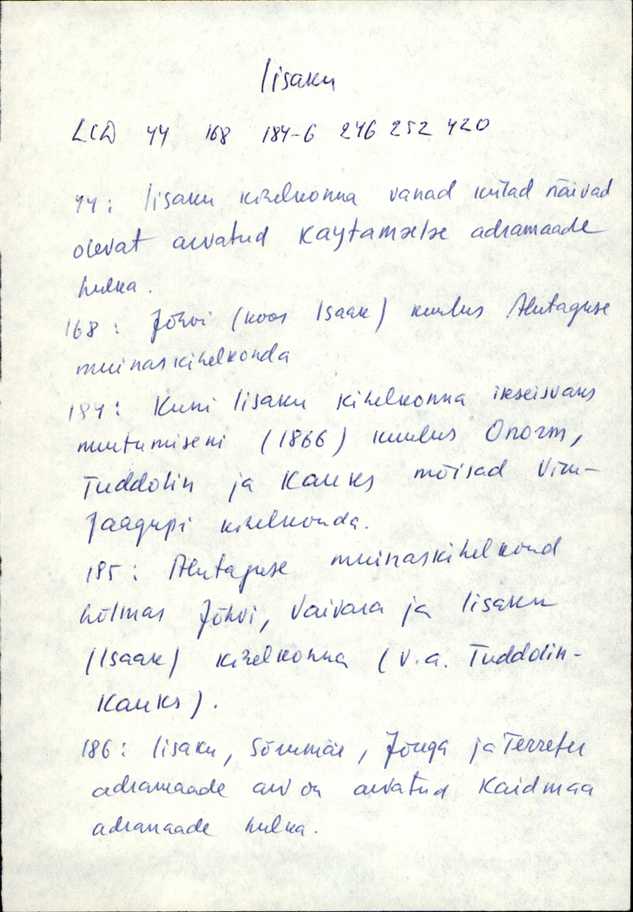 Iisaku
LCD 44 168 184-6 246 252 420
44: Iisaku kihelkonna vanad külad näivad
olevat arvatud Kaytamælæ adramaade
hulka.
168: Jõhvi (koos Isaak) kuulus Alutaguse
muinaskihelkonda
184: Kuni Iisaku kihelkonna iseseisvaks
muutumiseni (1866) kuulus Onorm,
Tuddolin ja Kauks mõisad Viru-
Jaagupi kihelkonda.
185: Alutaguse muinaskihelkond
hõlmas Jõhvi, Vaivara ja Iisaku
(Isaak) kihelkonna (v.a. Tuddolin-
Kauks).
186: Iisaku, Sõrumäe, Jõuga ja Terrefer
adramaade arv on arvatud Kaidmaa
adramaade hulka.